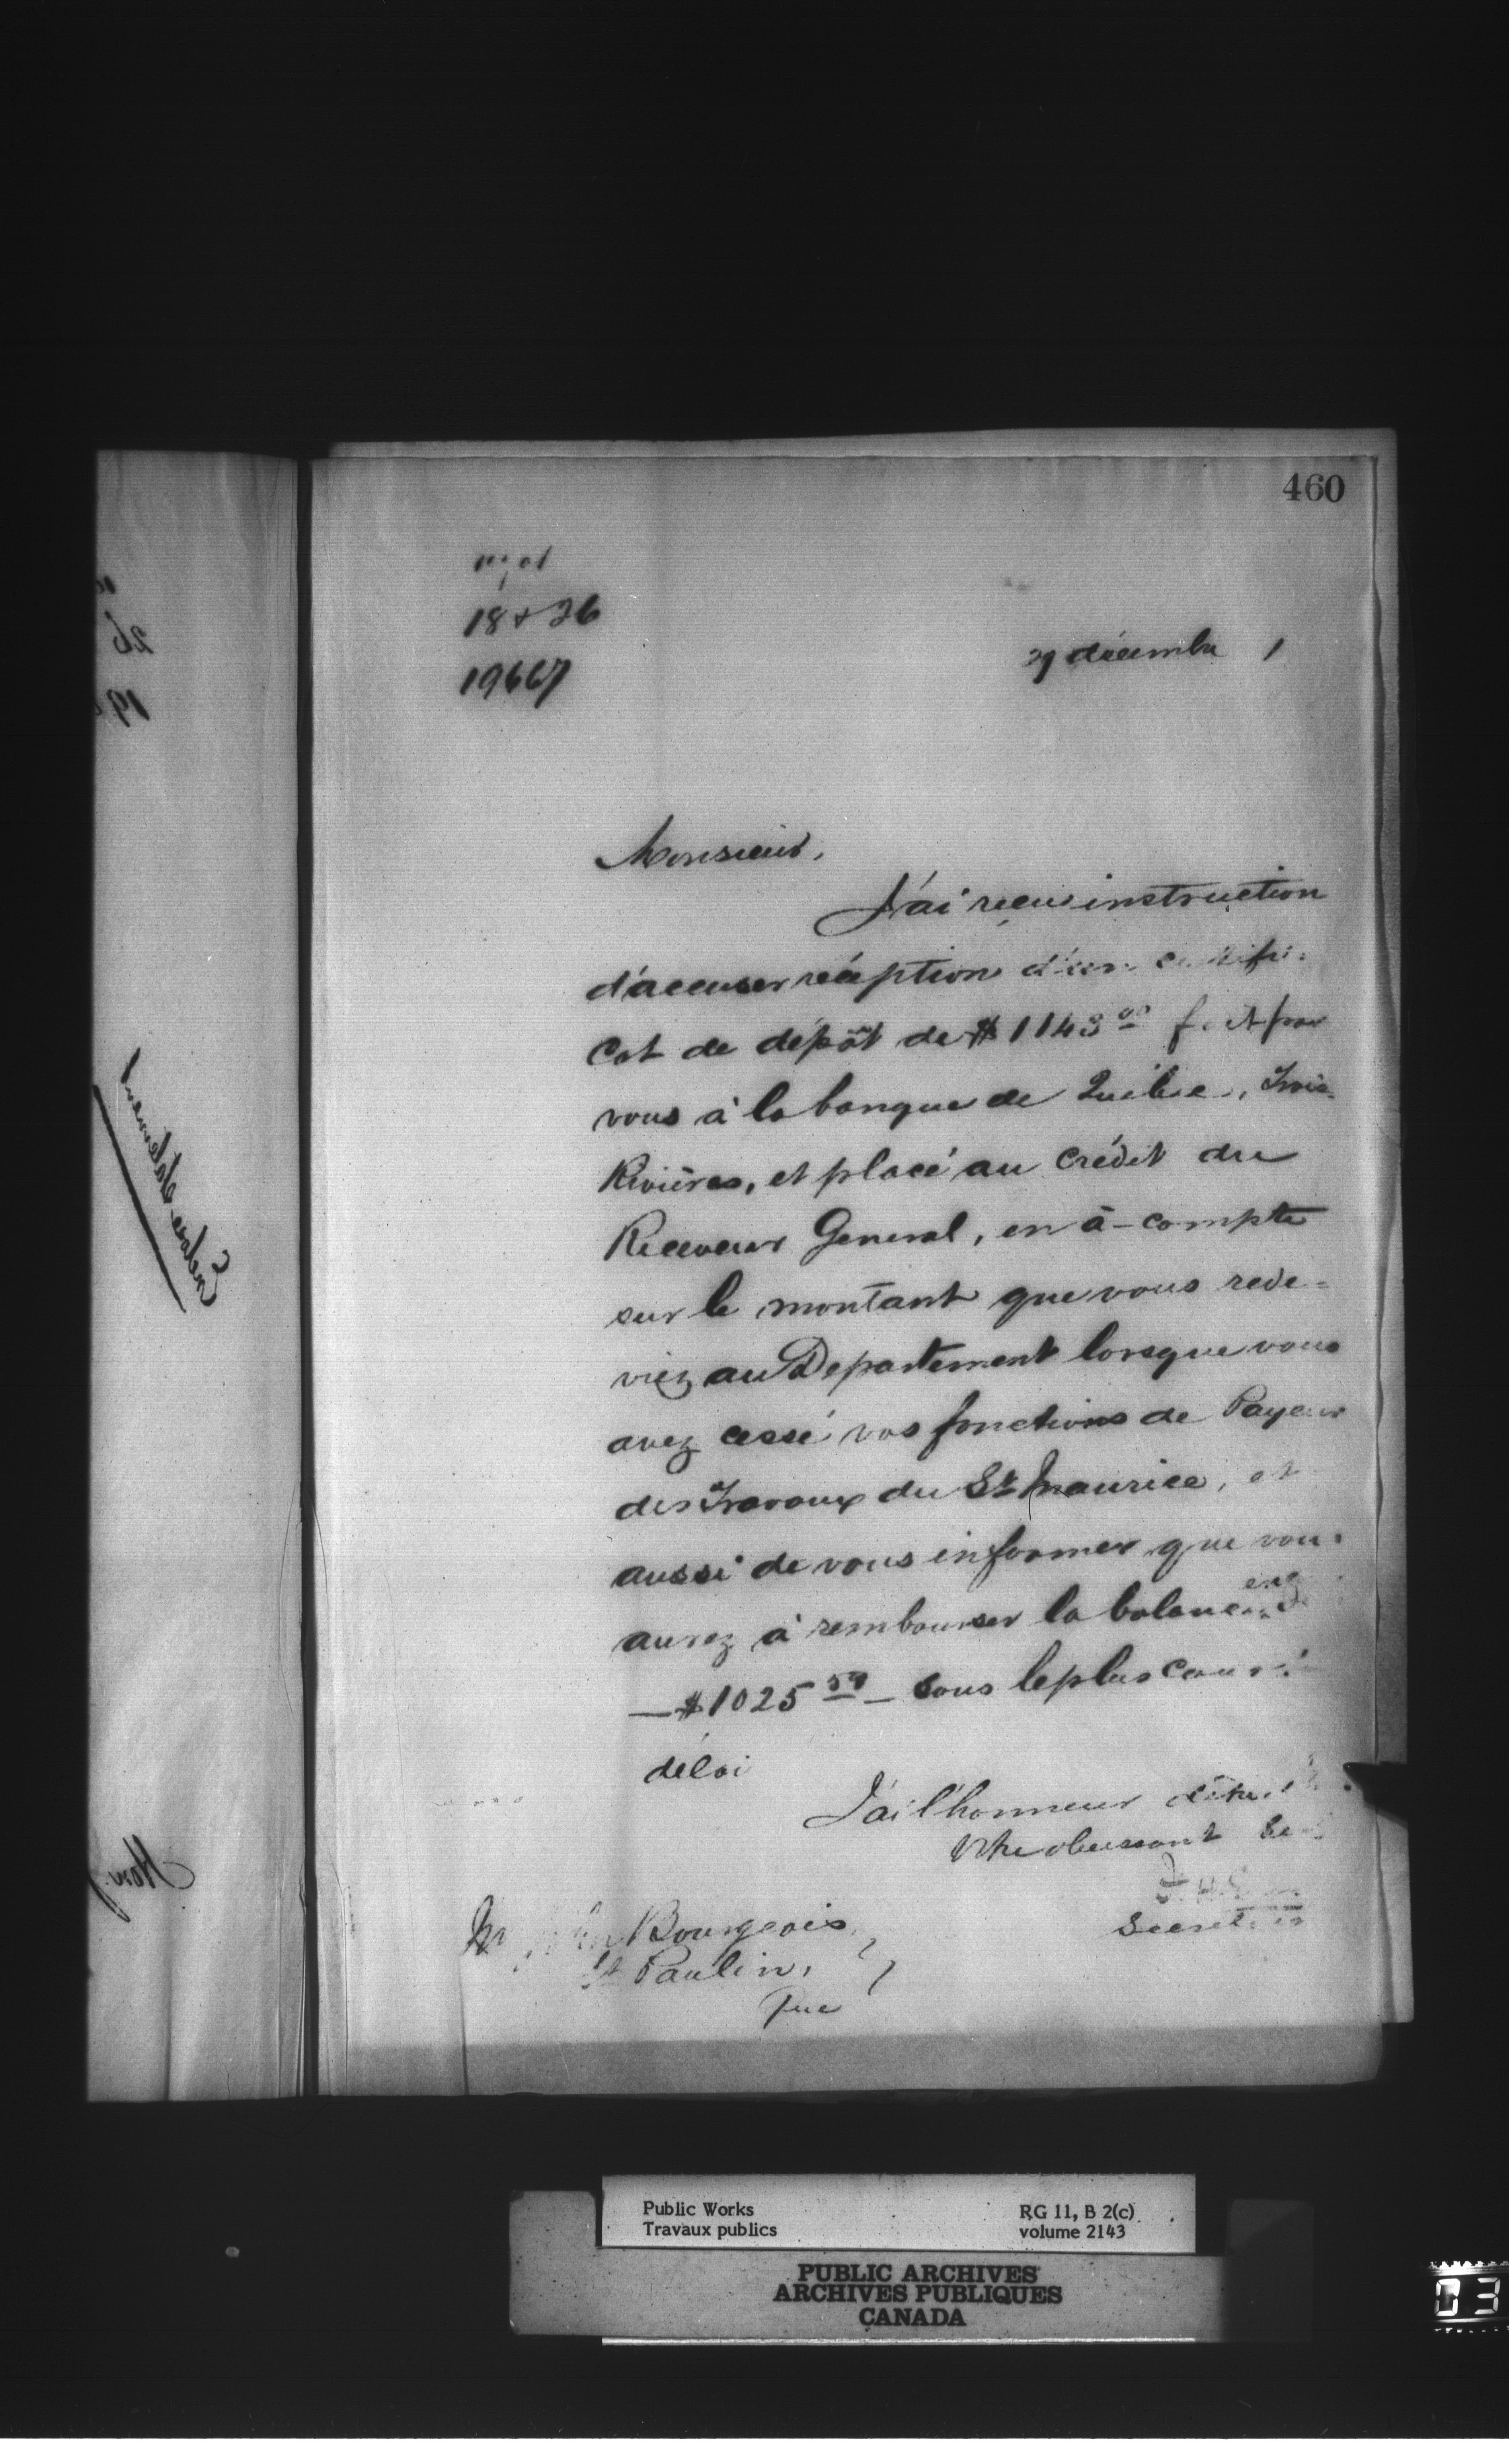 460
18 + 26
19667
29 décembre 1
Monsieur,
J'ai reçu instruction
d'accuser réception d'un certifi=
cat de dépôt de $1143 00 fait par
vous à la banque de Québec, Trois
Rivières, et placé au crédit du
Receveur General, en à-compte
sur le montant que vous rede=
viez au Département lorsque vous
avez cessé vos fonctions de Payeur
des Travaux du St Maurice, et
aussi de vous informer que vous
aurez à rembourser la balance
— $1025 59 — sous le plus court
délai
J'ai l'honneur d'être
Vtre obeissant
Secretaire
Bourgeois,
St Paulin,
Que
Enclose statement
Public Works
Travaux publics
RG 11, B 2(c)
volume 2143
PUBLIC ARCHIVES
ARCHIVES PUBLIQUES
CANADA
03